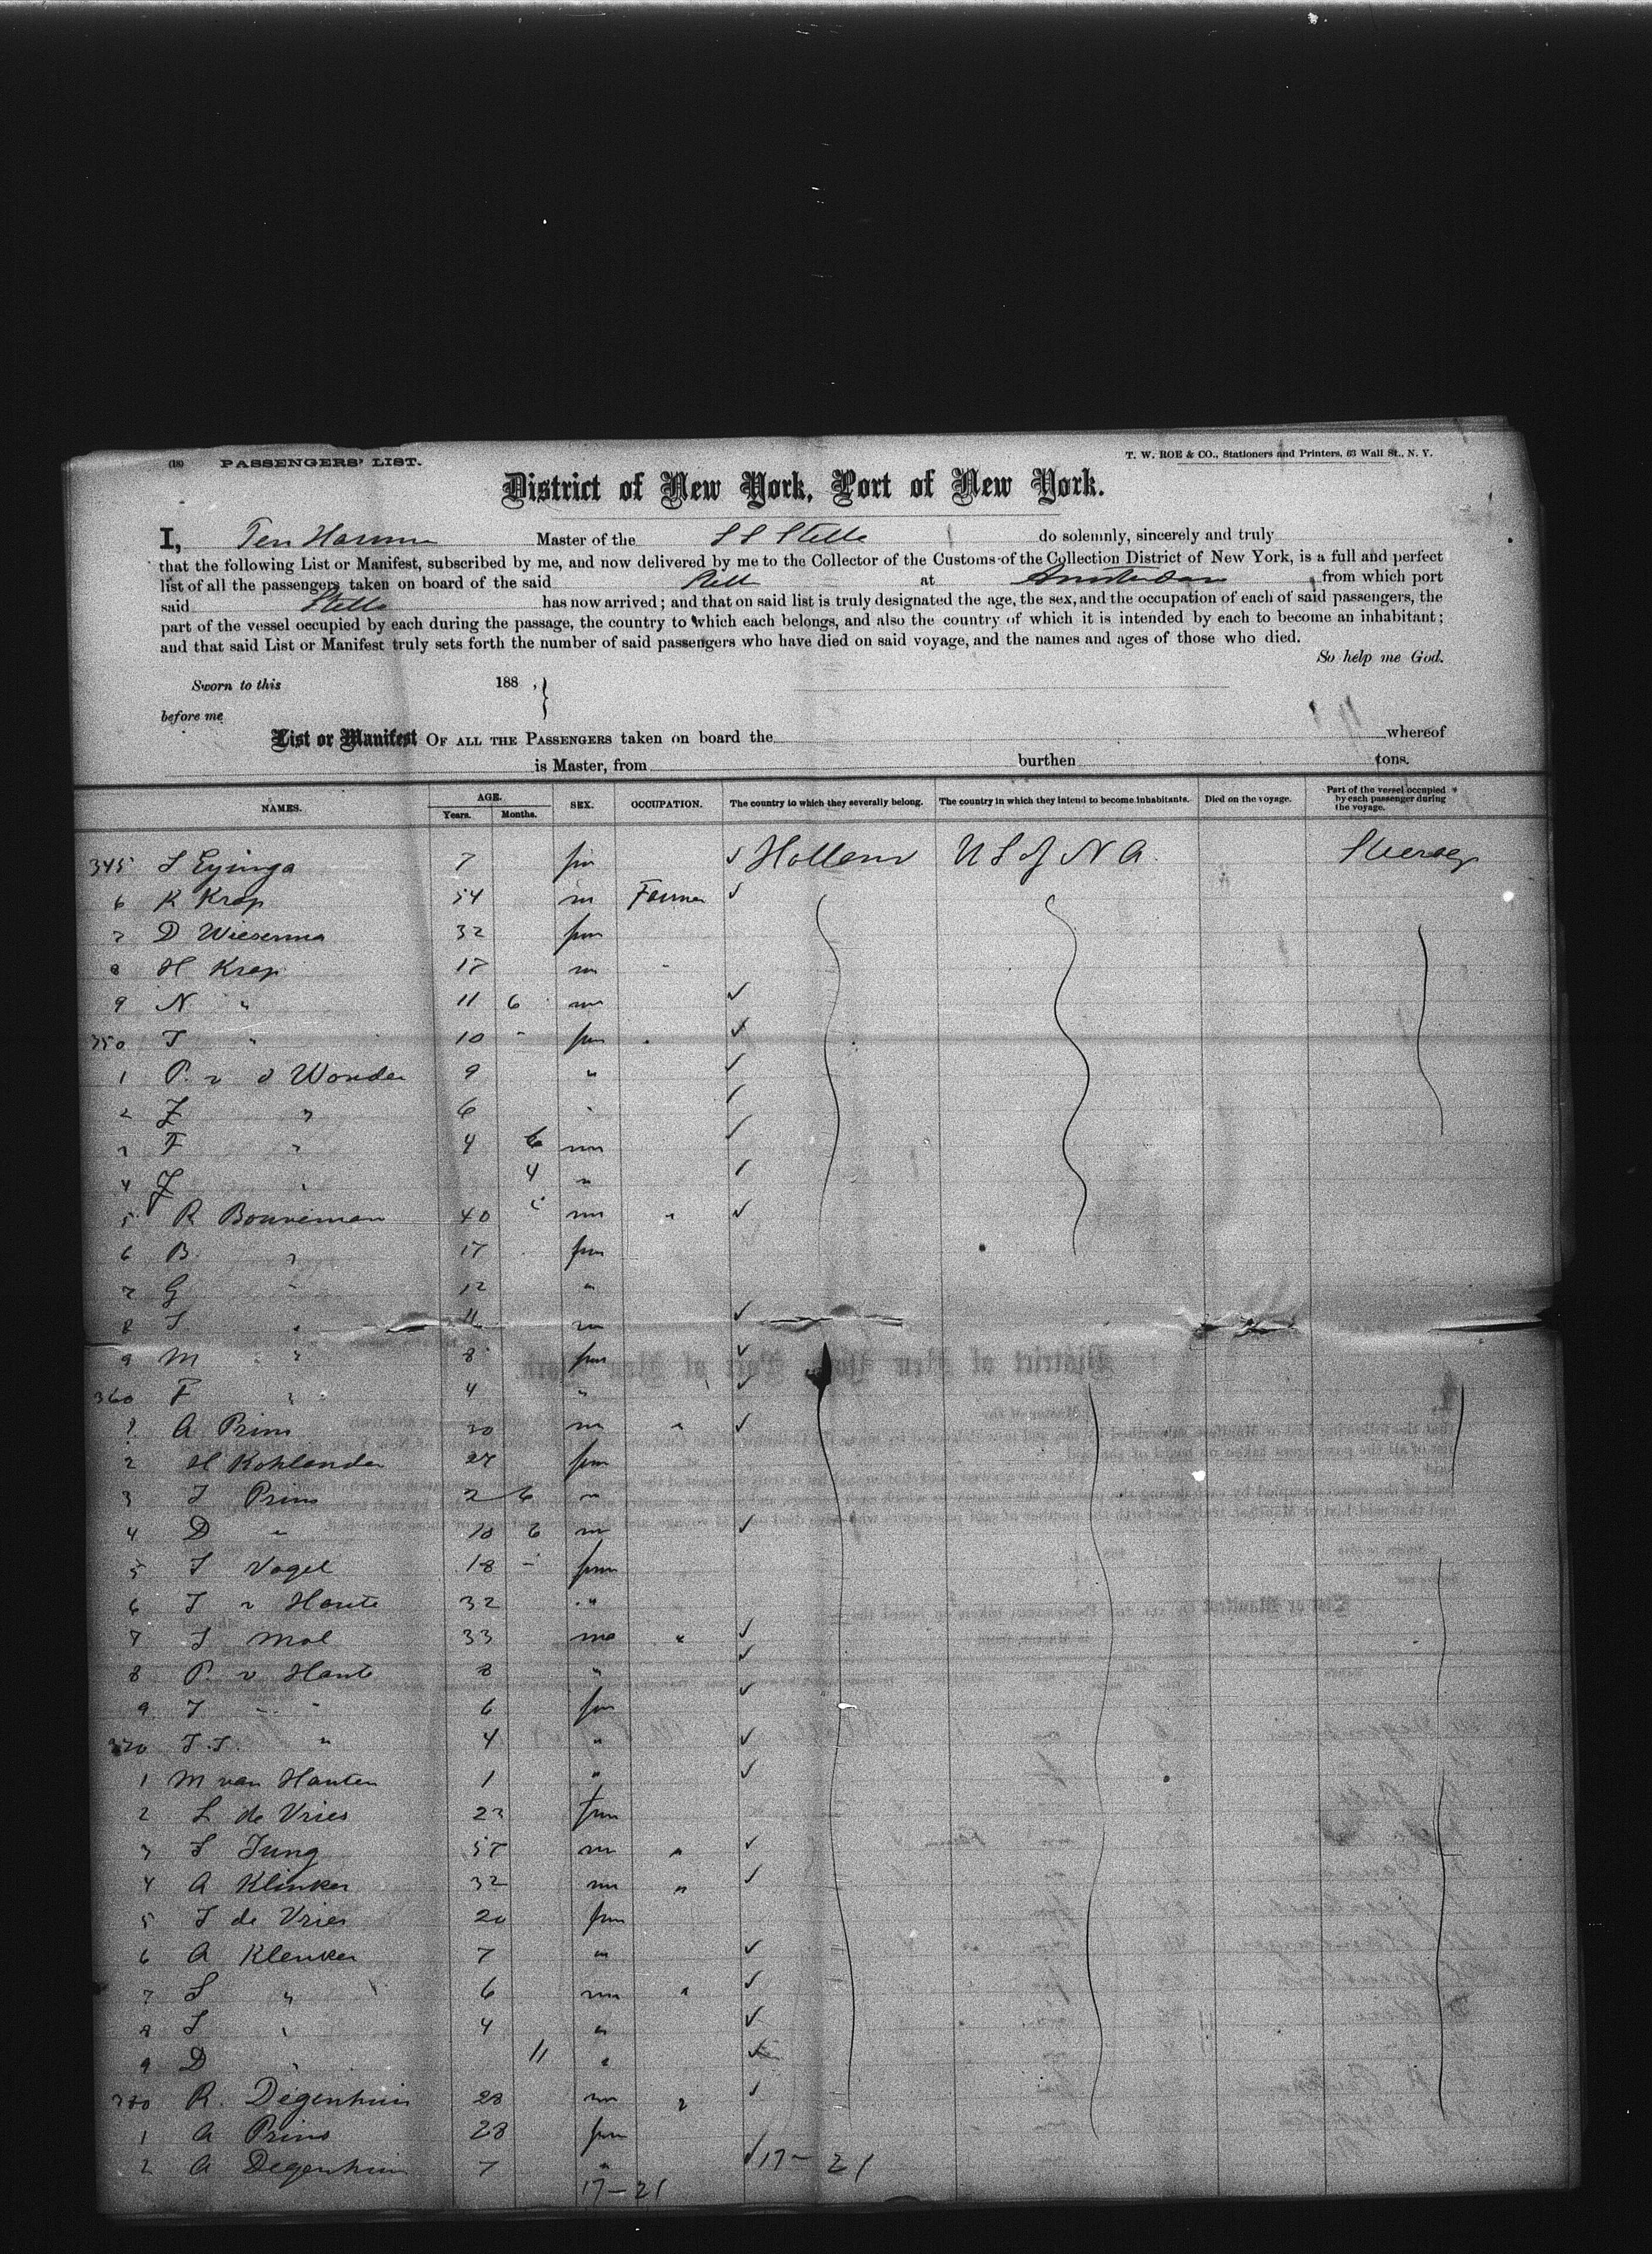 (18) PASSENGERS' LIST. T. W. ROE & CO., Stationers and Printers, 63 Wall St., N. Y.
District of New York, Port of New York.
I, Ten Master of the S S Stella do solemnly, sincerely and truly
that the following List or Manifest, subscribed by me, and now delivered by me to the Collector of the Customs of the Collection District of New York, is a full and perfect
list of all the passengers taken on board of the said at Amsterdam from which port
said Stella has now arrived; and that on said list is truly designated the age, the sex, and the occupation of each of said passengers, the
part of the vessel occupied by each during the passage, the country to which each belongs, and also the country of which it is intended by each to become an inhabitant;
and that said List or Manifest truly sets forth the number of said passengers who have died on said voyage, and the names and ages of those who died.
So help me God.
Sworn to this 188 , }
before me
List or Manifest OF ALL THE PASSENGERS taken on board the whereof
is Master, from burthen tons.
NAMES. AGE. Years. Months. SEX. OCCUPATION. The country to which they severally belong. The country in which they intend to become inhabitants. Died on the voyage. Part of the vessel occupied by each passenger during the voyage.
345 S Eyinga 7 fm ✓ Holland U S of N A. Steerage
6 K Krap 54 m Farmer ✓
7 D Wiersema 32 fm
8 H Krap 17 m
9 N " 11 6 m ✓
350 T " 10 - fm " ✓
1 P. v d Wouden 9 " ✓
2 J " 6 " ✓
3 F " 4 6 m ✓
4 J " 4 " ✓
5 R Bouveman 40 m " ✓
6 B. " 17 fm
7 G " 12 "
8 S. " 11 m ✓
9 M " 8 fm ✓
360 F " 4 " ✓
1 A Prins 30 m " ✓
2 H Kohlander 27 fm
3 J Prins 2 6 "
4 D " 10 6 m ✓
5 J Vogel 18 - fm
6 J v Houte 32 "
7 J Mol 33 m " ✓
8 P. v Houte 8 " ✓
9 J " 6 fm ✓
370 J. J. " 4 " ✓
1 M van Houten 1 " ✓
2 L de Vries 23 fm
3 S Jung 57 m " ✓
4 A Klinker 32 m " ✓
5 J de Vries 20 fm
6 A Klenker 7 " ✓
7 S " 6 m " ✓
8 S " 4 " ✓
9 D " 11 " ✓
380 R. Degenhuis 28 m " ✓
1 A Prins 28 fm
2 A Degenhuis 7 " ✓ 17 - 21
17 - 21